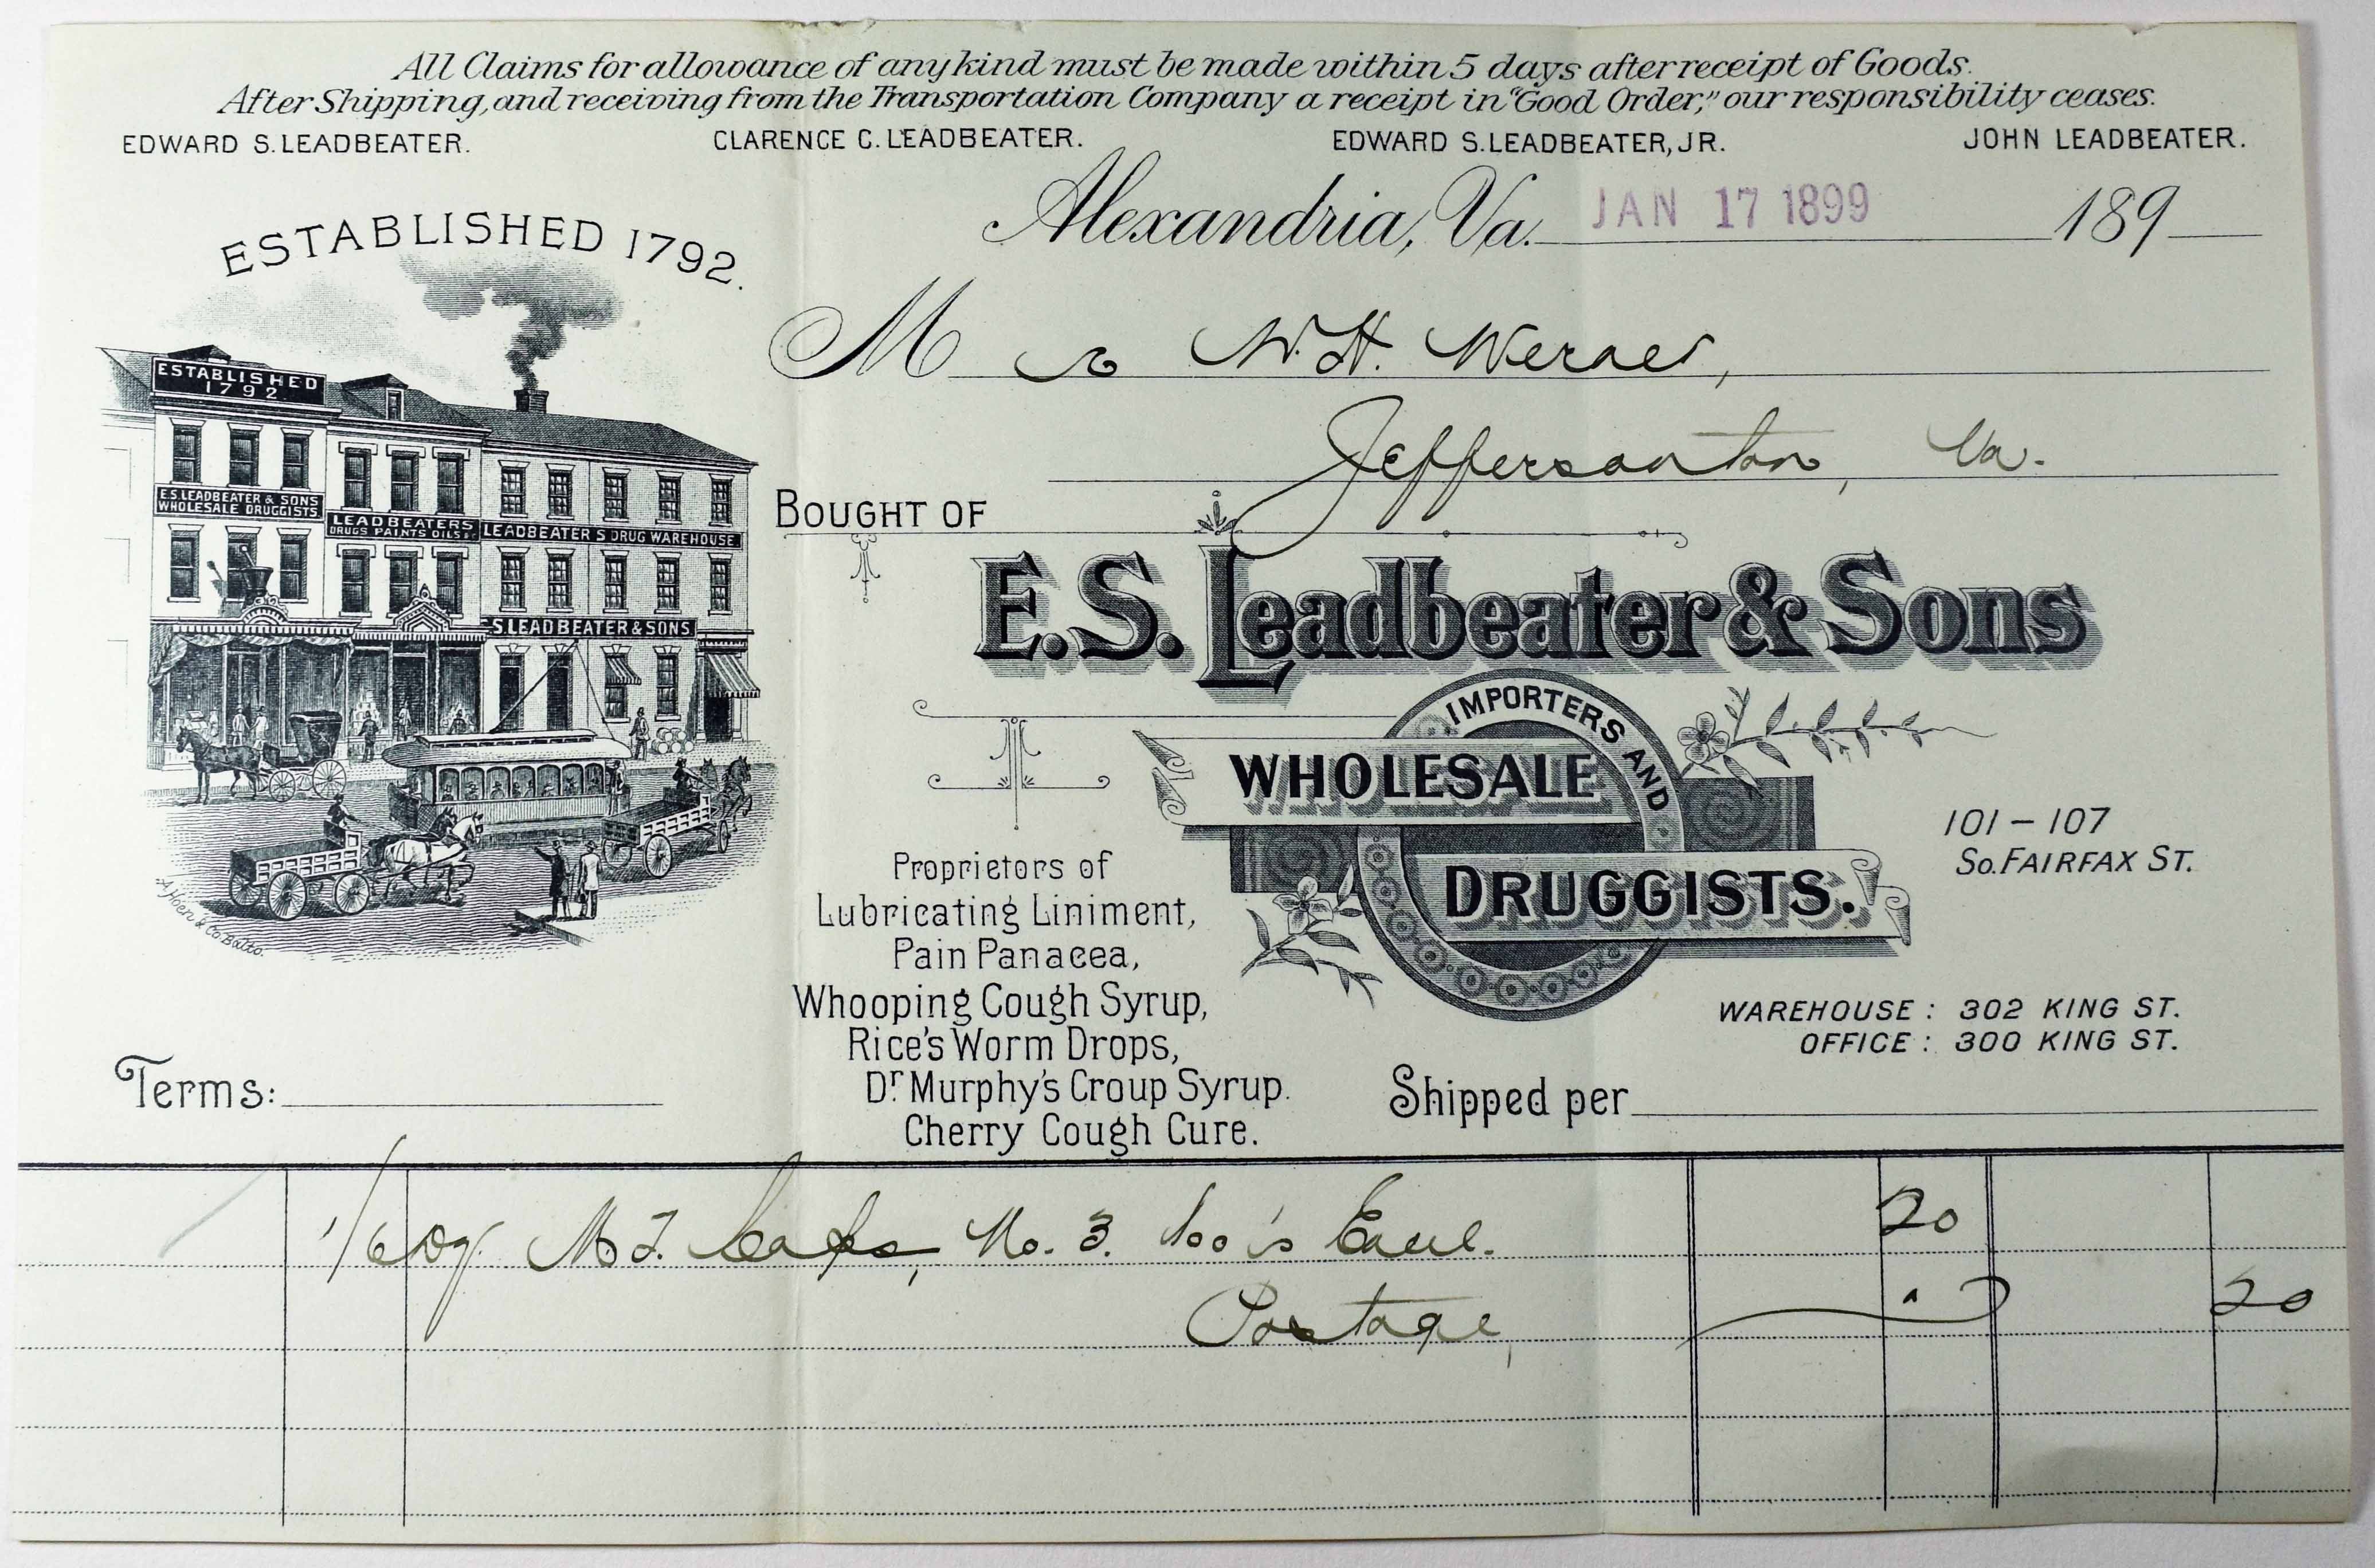 All Claims for allowance of any kind must be made within 5 days after receipt of Goods.
After Shipping, and receiving from the Transportation Company a receipt in "Good Order," our responsibility ceases.
EDWARD S. LEADBEATER. CLARENCE C. LEADBEATER. EDWARD S. LEADBEATER, JR. JOHN LEADBEATER.
Alexandria, Va. JAN 17 1899 189
ESTABLISHED 1792.
M r W. H. Werner,
Jeffersonton, Va.
ESTABLISHED
1792
E.S. LEADBEATER & SONS
WHOLESALE DRUGGISTS
LEADBEATERS
DRUGS PAINTS OILS &c
LEADBEATER'S DRUG WAREHOUSE
S. LEADBEATER & SONS
A. Hoen & Co. Balto.
BOUGHT OF
E.S. Leadbeater & Sons
IMPORTERS AND
WHOLESALE
DRUGGISTS.
101 – 107
So. FAIRFAX ST.
Proprietors of
Lubricating Liniment,
Pain Panacea,
Whooping Cough Syrup,
Rice's Worm Drops,
Dr Murphy's Croup Syrup.
Cherry Cough Cure.
WAREHOUSE : 302 KING ST.
OFFICE : 300 KING ST.
Terms:
Shipped per
1/6 Dz. M. T. No. 3. 100's 20
Postage, 20